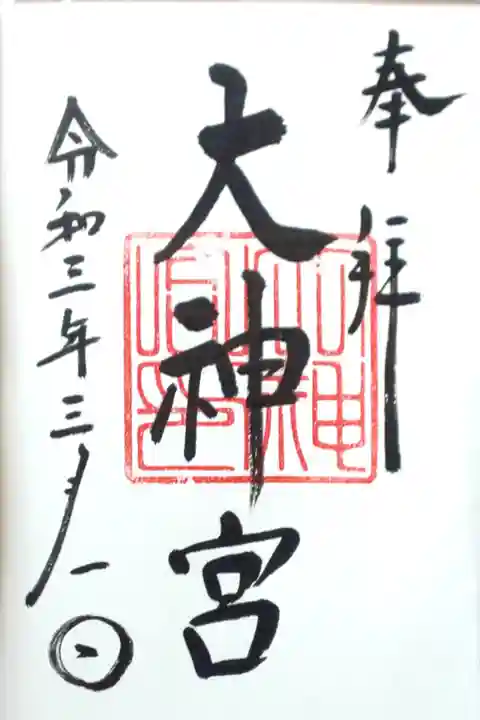 奉拝
大神宮
令和三年三月一日